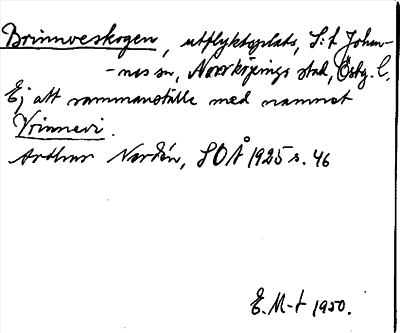 Brinnveskogen, utflyktsplats, S:t Johan-
-nes sn, Norrköpings stad, Östg. l.
Ej att sammanställe med namnet
Vrinnevi.
Arthur Nordén, SOÅ 1925 s. 46
E. M-t 1950.